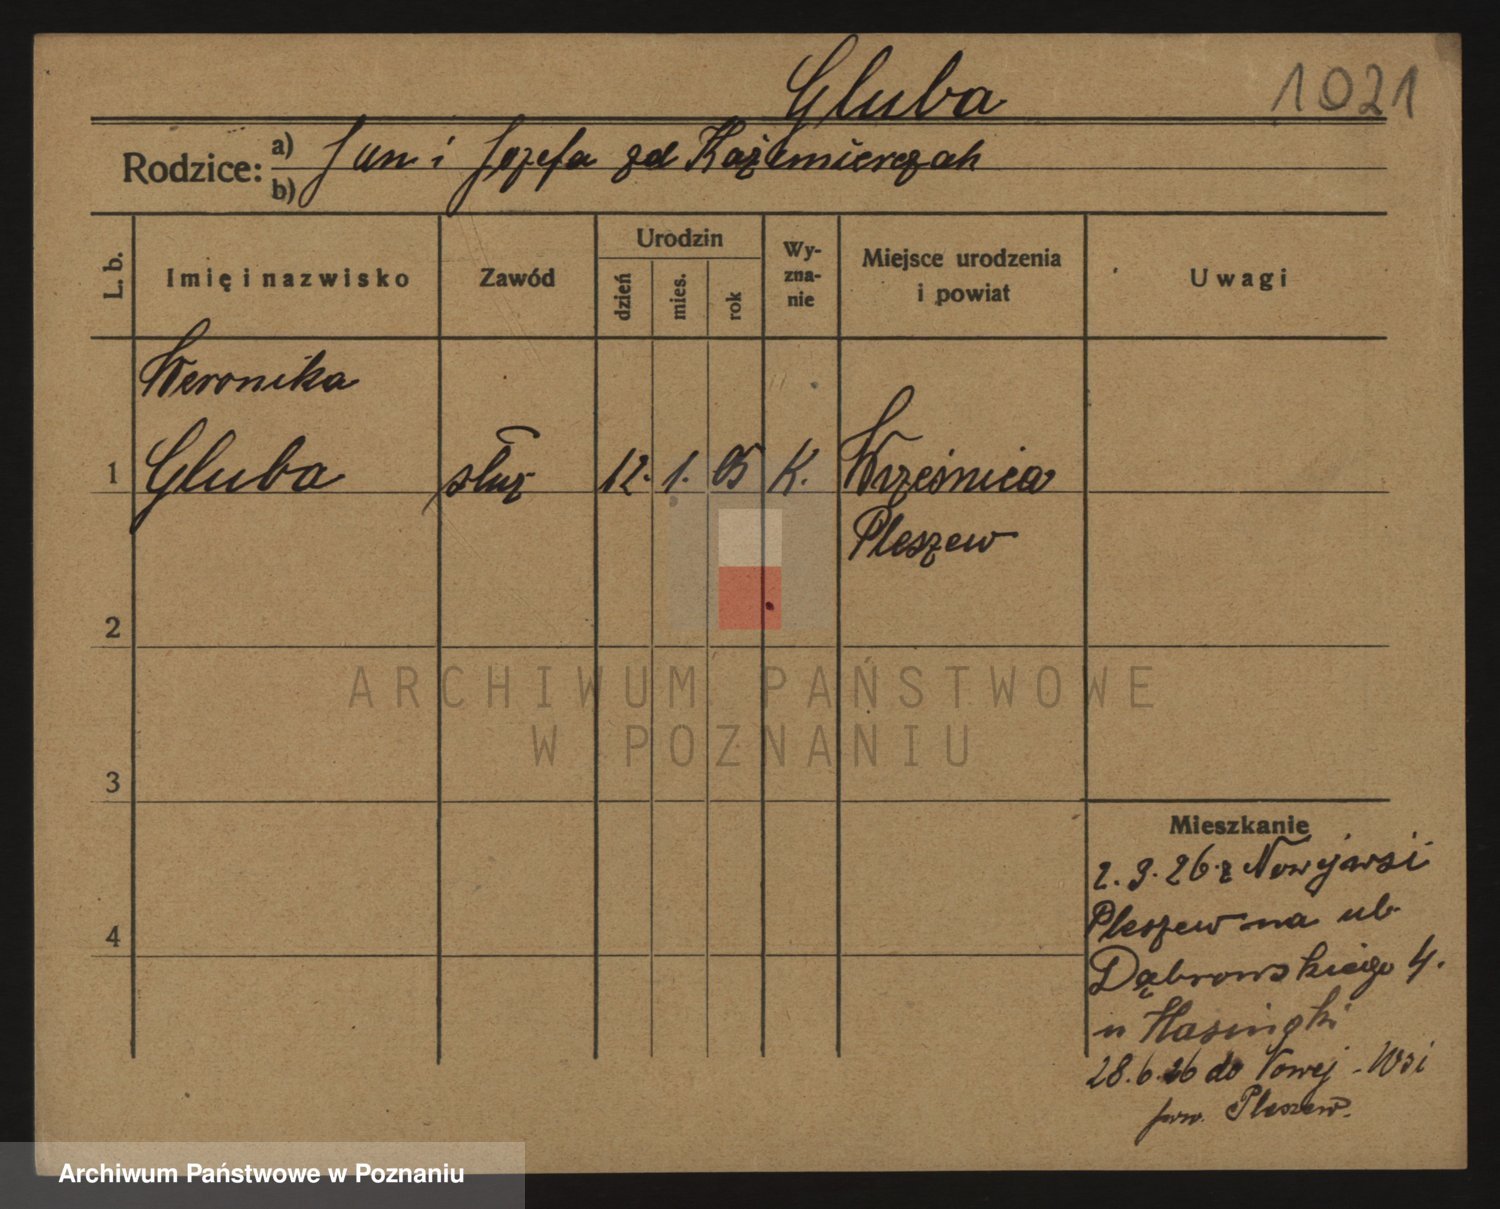 Gluba
1021
Rodzice: a) Jan i Józefa zd Kaźmierczak
b)
L. b.
Imię i nazwisko
Zawód
Urodzin
dzień
mies.
rok
Wy-
zna-
nie
Miejsce urodzenia
i powiat
Uwagi
Weronika
1 Gluba służ 12. 1. 05 K. Wrześnica
Pleszew
2
ARCHIWUM PAŃSTWOWE
W POZNANIU
3
Mieszkanie
2.3.26 z Nowejwsi
4
Pleszew na ul.
Dąbrowskiego 4.
u
28.6.26 do Nowej-Wsi
pow. Pleszew.
Archiwum Państwowe w Poznaniu